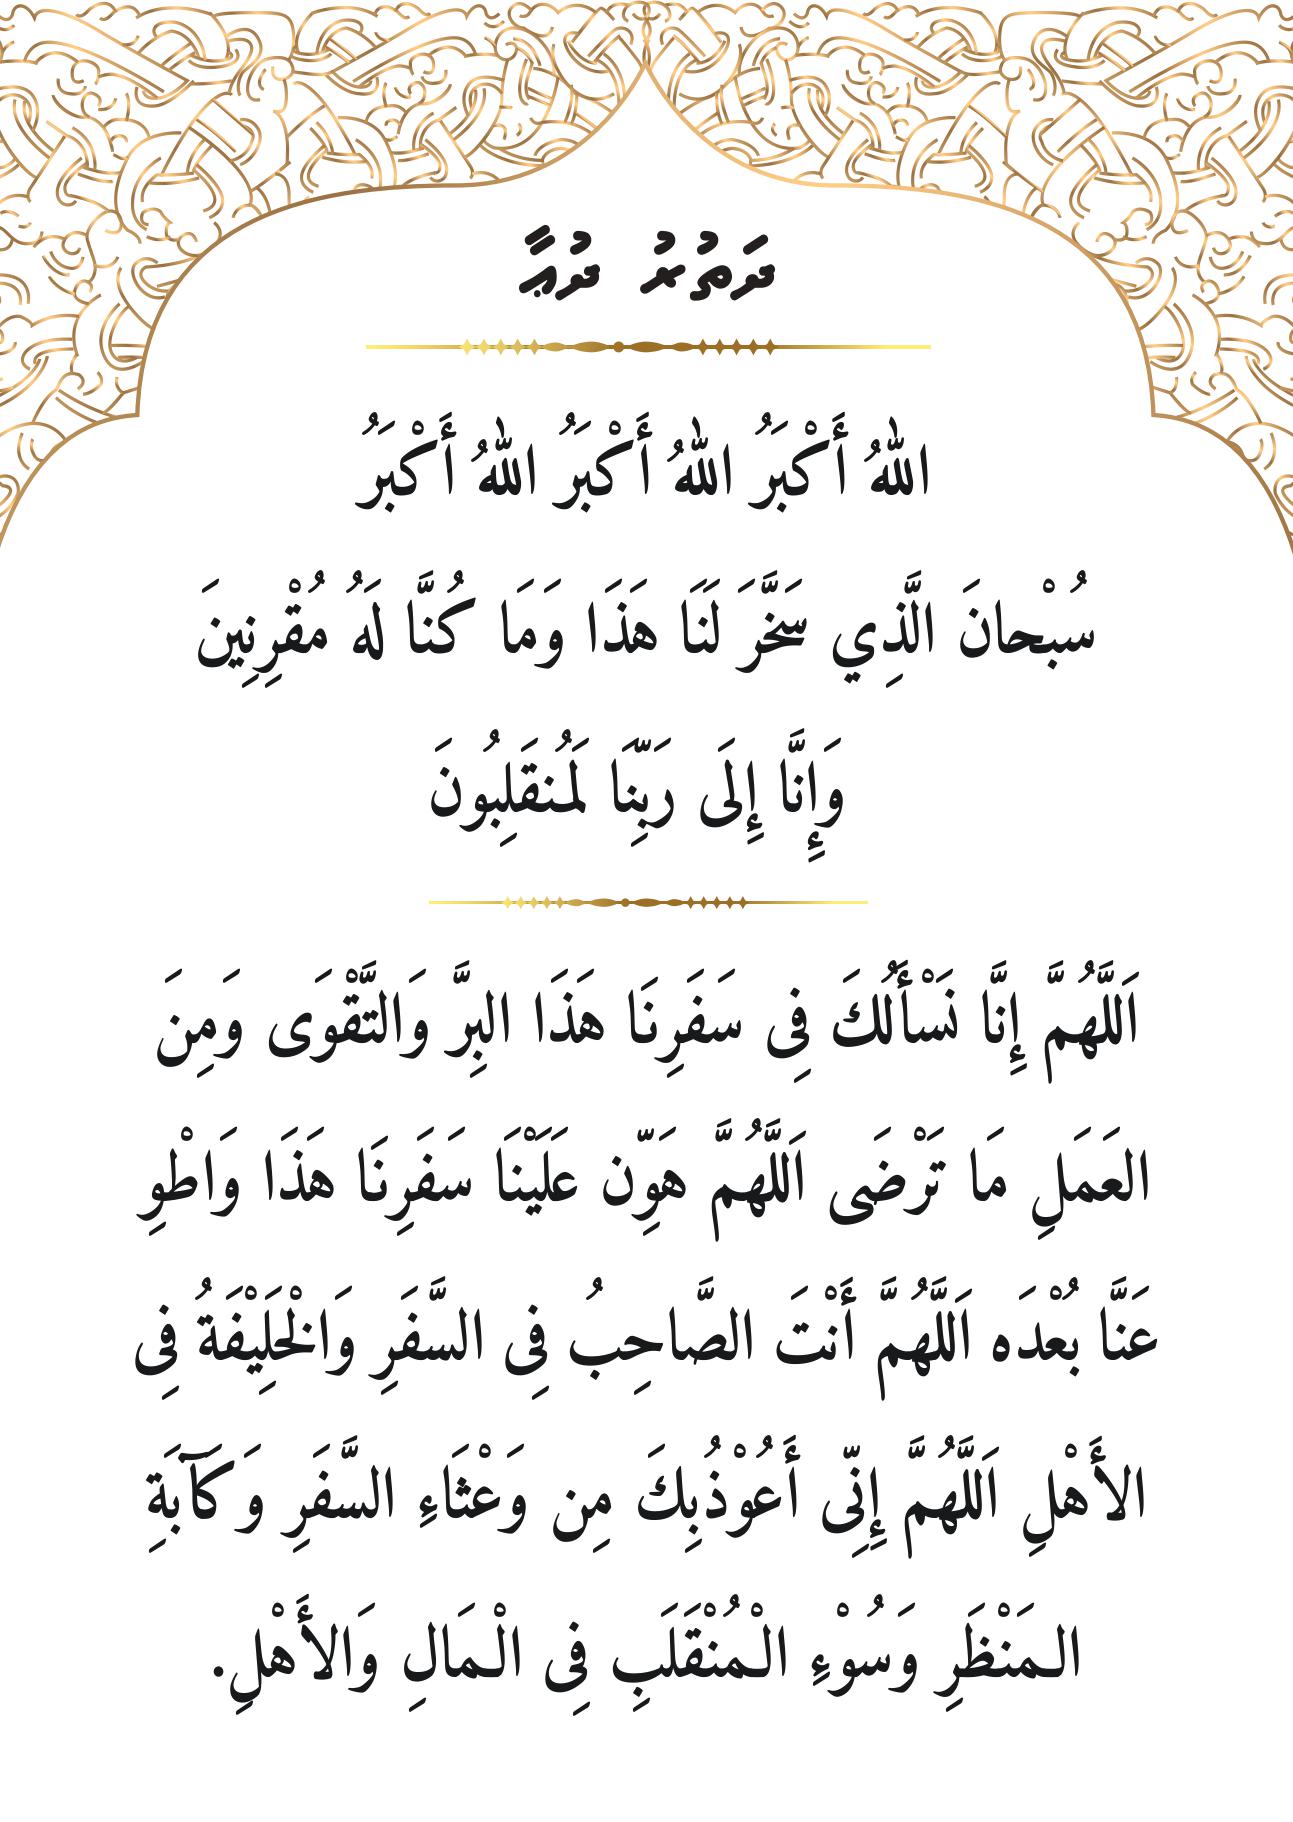 ދަތުރު ދުޢާ
اللهُ أَكْبَرُ اللهُ أَكْبَرُ اللهُ أَكْبَرُ
سُبْحانَ الَّذِي سَخَّرَ لَنَا هَذَا وَمَا كُنَّا لَهُ مُقْرِنِينَ
وَإِنَّا إِلَى رَبِّنَا لَمُنقَلِبُونَ
اَللَّهُمَّ إِنَّا نَسْأَلُكَ فِى سَفَرِنَا هَذَا البِرَّ وَالتَّقْوَى وَمِنَ
العَمَلِ مَا تَرْضَى اَللَّهُمَّ هَوِّن عَلَيْنَا سَفَرِنَا هَذَا وَاطْوِ
عَنَّا بُعْدَه اَللَّهُمَّ أَنْتَ الصَّاحِبُ فِى السَّفَرِ وَالْخَلِيْفَةُ فِى
الأَهْلِ اَللَّهُمَّ إِنِّى أَعُوْذُبِكَ مِن وَعْثَاءِ السَّفَرِ وَكَآبَةِ
المَنْظَرِ وَسُوْءِ الْمُنْقَلَبِ فِى الْمَالِ وَالأَهْلِ.